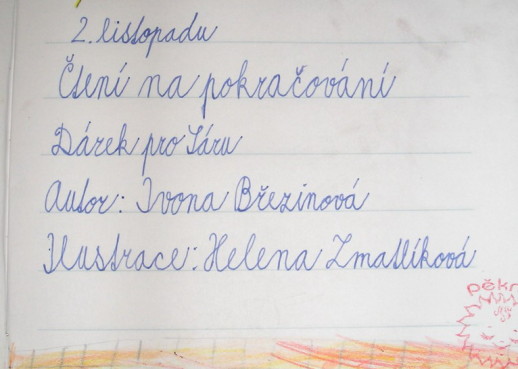 2. listopadu
Čtení na pokračování
Dárek pro Sáru
Autor: Ivona Březinová
Ilustrace: Helena Zmatlíková